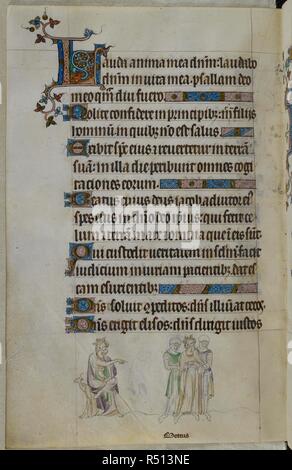 Lauda anima mea dnm: laudabo
dnm in vita mea: psallam deo
meo qmdiu fuero.
Nolite confidere in principibz: in filijs
hominum in quibz no est salus.
Exibit sps eius & revertetur in terra
suā: in illa die peribunt omnes cogi
taciones eorum.
Beatus cuius deus jacob adiutor ei9
spes eius in dno deo ipius: qui fecit ce
lum & terram mare & omnia que ī eis sūt.
Qui custodit veritatem in sclm: facit
iudicium iniuriam pacientibz: dat es
cam esurientibz.
Dns soluit 9peditos: dns illumīat cecos.
Dns erigit elisos: dns dirigit iustos
alamy
R513NE